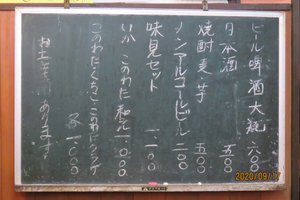 ビール啤酒大瓶 六〇〇
日本酒 五〇〇
焼酎麦・芋 五〇〇
ノンアルコールビール 二〇〇
味見セット 一、一〇〇
いか このわた 和え 一、〇〇〇
このわた・くちこ・このわたクラゲ
各 一、〇〇〇
あります
2020/09/17